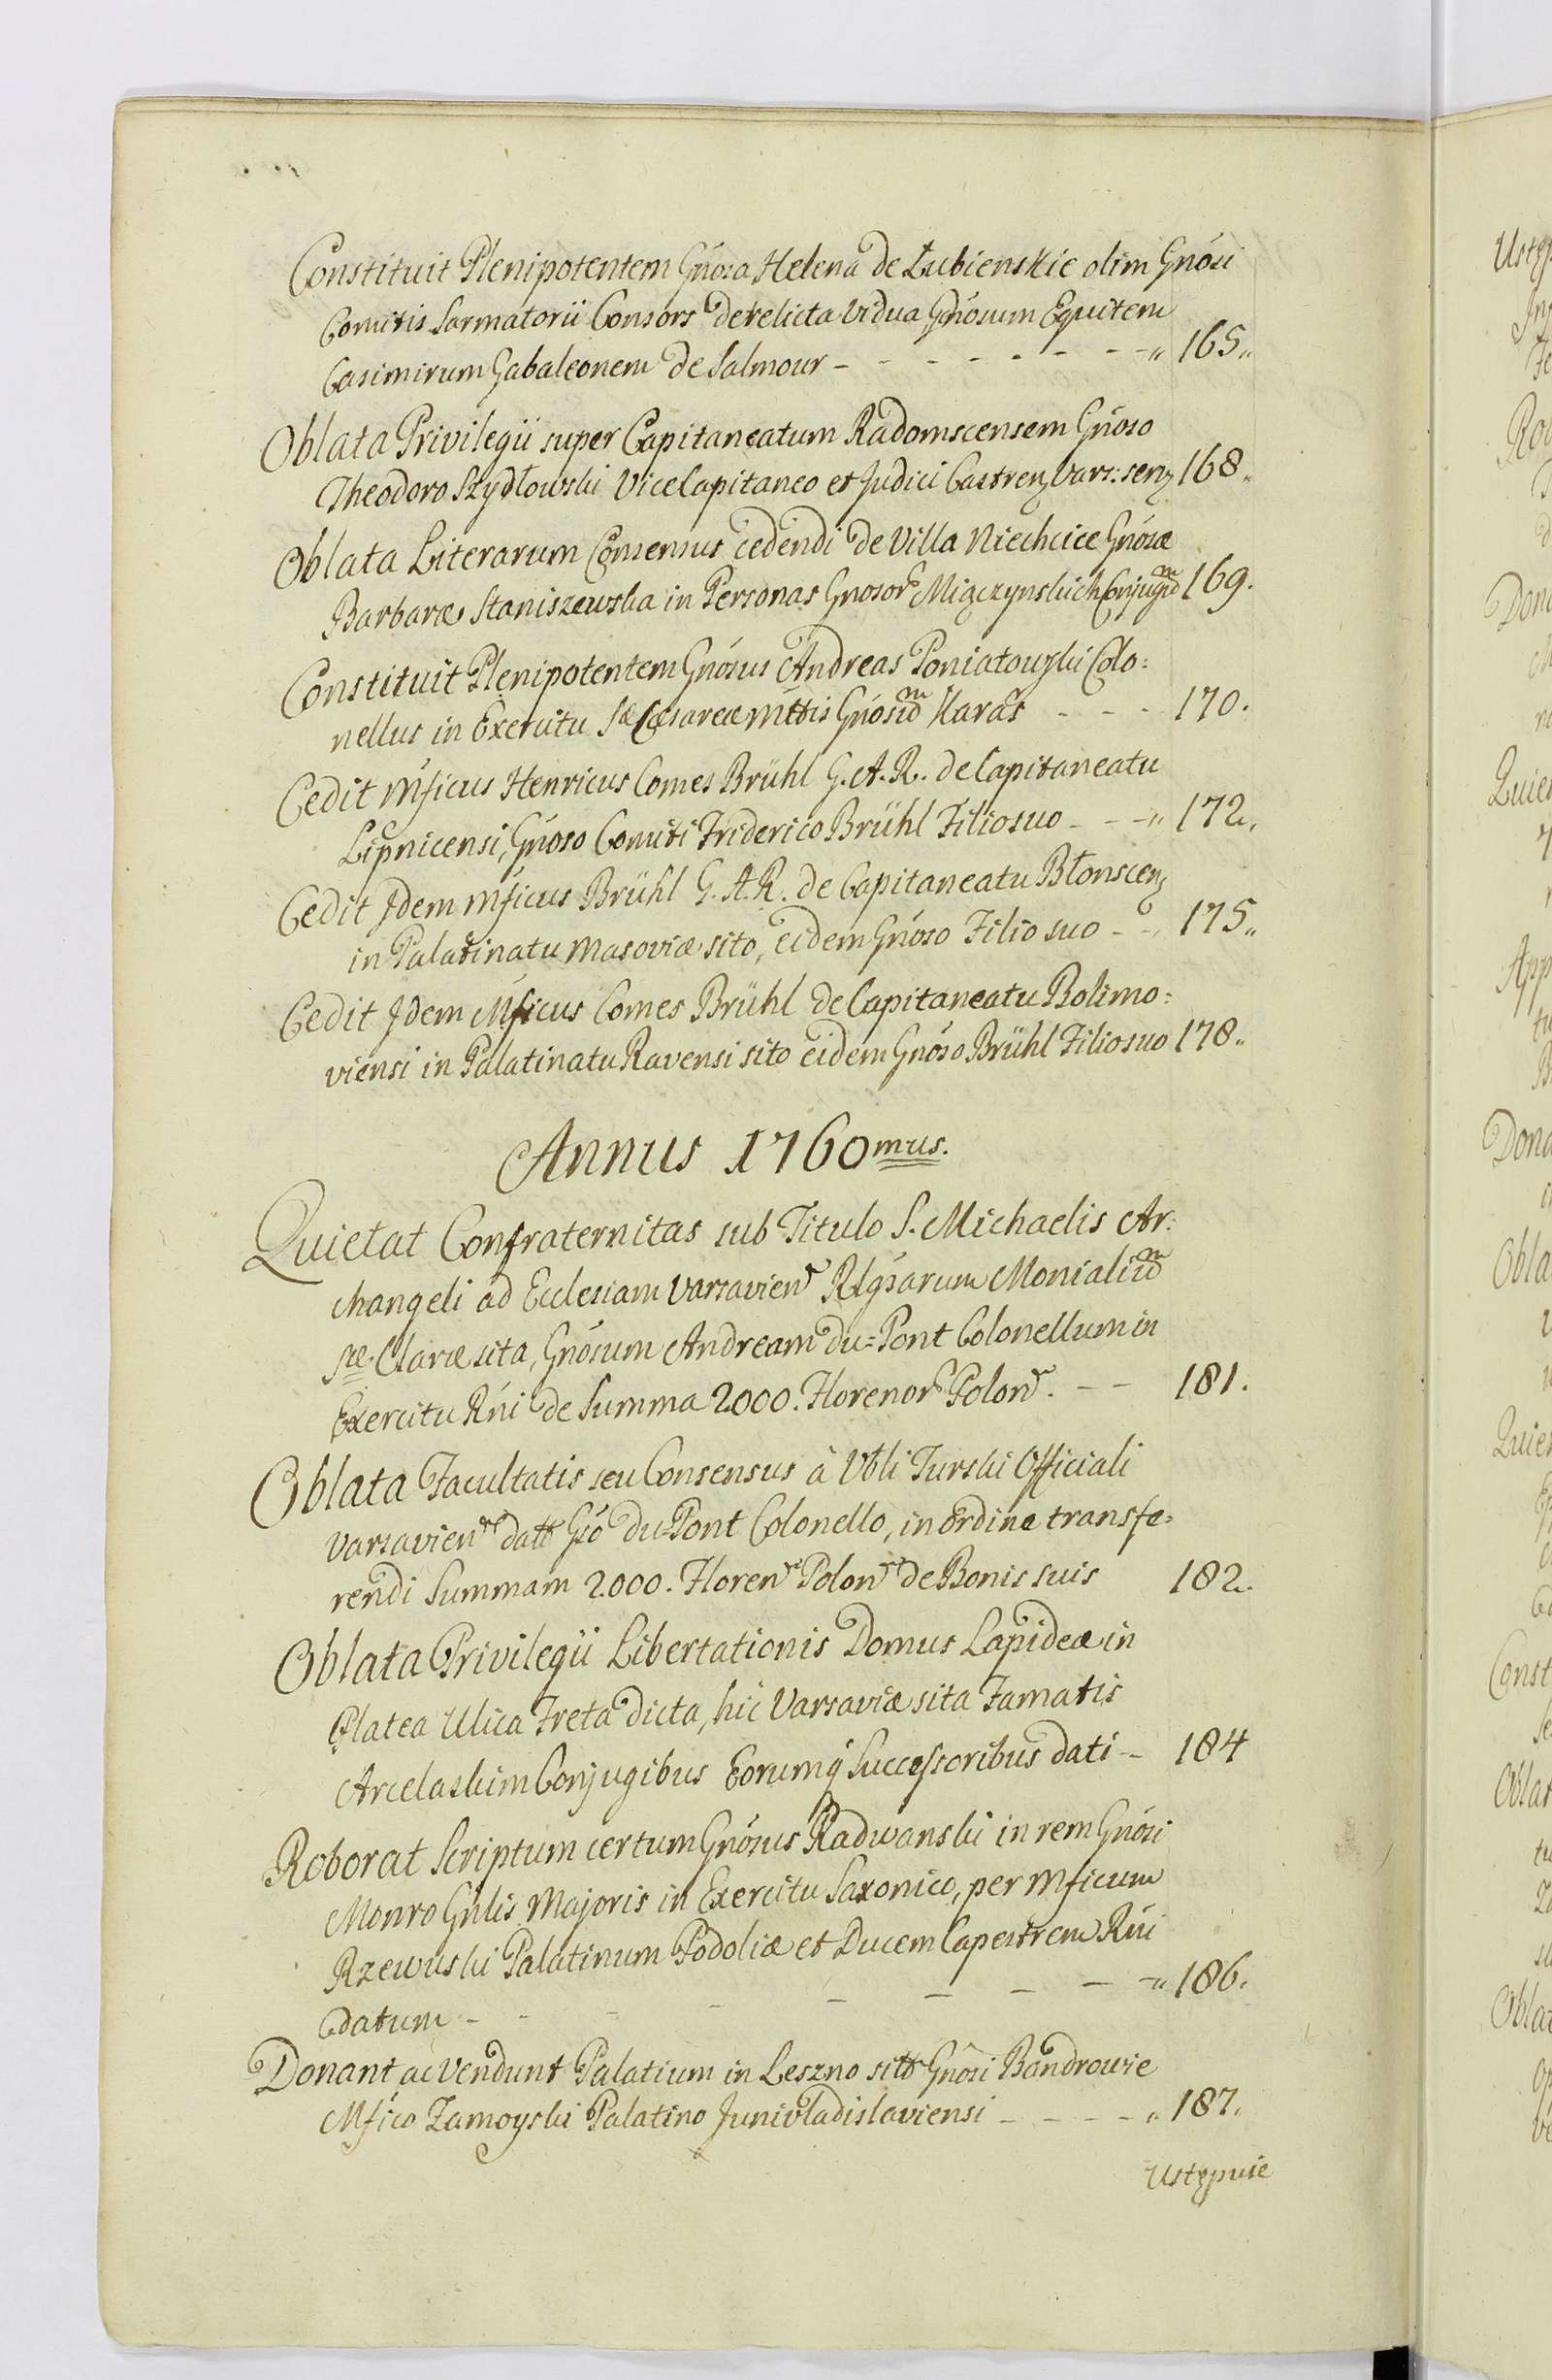 Constituit Plenipotentem Gnosa Helena de Łubienskie olim Gnosi
Comitis Sarmatorii Consors derelicta Vidua Gnosum Equitem
Casimirum Gabaleonem de Salmour - - - - - - - -" 165"
Oblata Privilegii super Capitaneatum Radomscensem Gnoso
Theodoro Szydłowski ViceCapitaneo et Judici Castrenz Vars: senz 168"
Oblata Literarum Consensus cedendi de Villa Niechcice Gnosæ
Barbaræ Staniszewska in Personas Gnosor Miączynskich Conjugum 169.
Constituit Plenipotentem Gnosus Andreas Poniatowski Colo:
nellus in Exercitu Sæ Cæsareæ Mttis Gnosum Karaś - - - 170.
Cedit Mficus Henricus Comes Brühl G. A. R. de Capitaneatu
Lipnicensi, Gnoso Comiti Friderico Brühl Filio suo - - -" 172.
Cedit Idem Mficus Brühl G. A. R. de Capitaneatu Błonscenz
in Palatinatu Masoviæ sito, eidem Gnoso Filio suo - -" 175"
Cedit Idem Mficus Comes Brühl de Capitaneatu Bolimo:
viensi in Palatinatu Ravensi sito eidem Gnoso Brühl Filio suo 178"
Annus 1760mus.
Quietat Confraternitas sub Titulo S. Michaelis Ar:
changeli ad Ecclesiam Varsavien Rlgsarum Monialium
Sæ. Claræ sita, Gnosum Andream du=Pont Colonellum in
Exercitu Rni de Summa 2000. Florenor Polon. - - 181.
Oblata Facultatis seu Consensus à Vbli Turski Officiali
Varsavien datt Gso du=Pont Colonello, in ordine transfe:
rendi Summam 2000. Floren Polon de Bonis suis 182.
Oblata Privilegii Libertationis Domus Lapideæ in
Platea Ulica Freta dicta, hic Varsaviæ sita Famatis
Arcelaskim Conjugibus Eorumq Successoribus dati - 184
Roborat Scriptum certum Gnosus Radwanski in rem Gnosi
Monro Gnlis Majoris in Exercitu Saxonico, per Mficum
Rzewuski Palatinum Podoliæ et Ducem Capestrem Rni
datum - - - - - - - -" 186.
Donant ac Vendunt Palatium in Leszno sitt Gnosi Bandrowie
Mfico Zamoyski Palatino Junivladislaviensi - - - -" 187.
Ustępuie